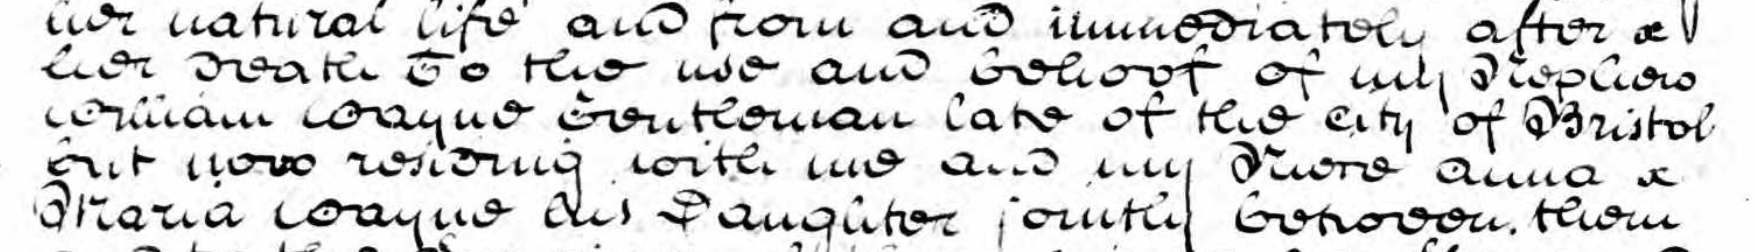 her natural life and from and immediately after
her death To the use and behoof of my Nephew
William Wayne Gentleman late of the City of Bristol
but now residing with me and my Niece Anna
Maria Wayne his Daughter jointly between them